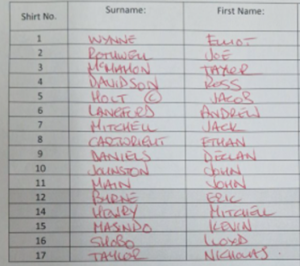 Shirt No. Surname: First Name:
1 WYNNE ELLIOT
2 ROTHWELL JOE
3 McMAHON TAYLOR
4 DAVIDSON ROSS
5 HOLT © JACOB
6 LANGFORD ANDREW
7 MITCHELL JACK
8 CARTWRIGHT ETHAN
9 DANIELS DECLAN
10 JOHNSTON JOHN
11 MAIN JOHN
12 BYRNE ERIC
14 HENRY MITCHELL
15 MASNDO KEVIN
16 SHOBO LLOYD
17 TAYLOR NICHOLAS.